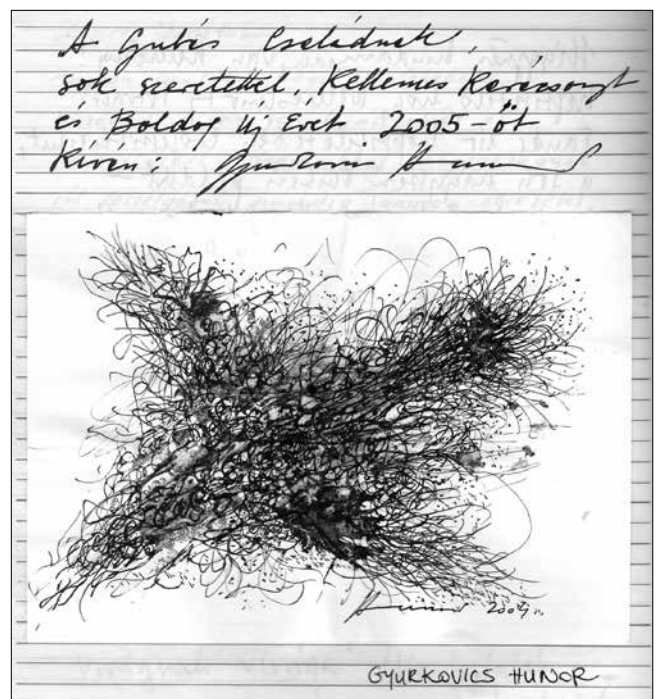 A Gubás Családnak,
sok szeretettel, Kellemes Karácsonyt
és Boldog Új Évet 2005-öt
Kíván: Gyurkovics Hunor
Hunor 2004
GYURKOVICS HUNOR